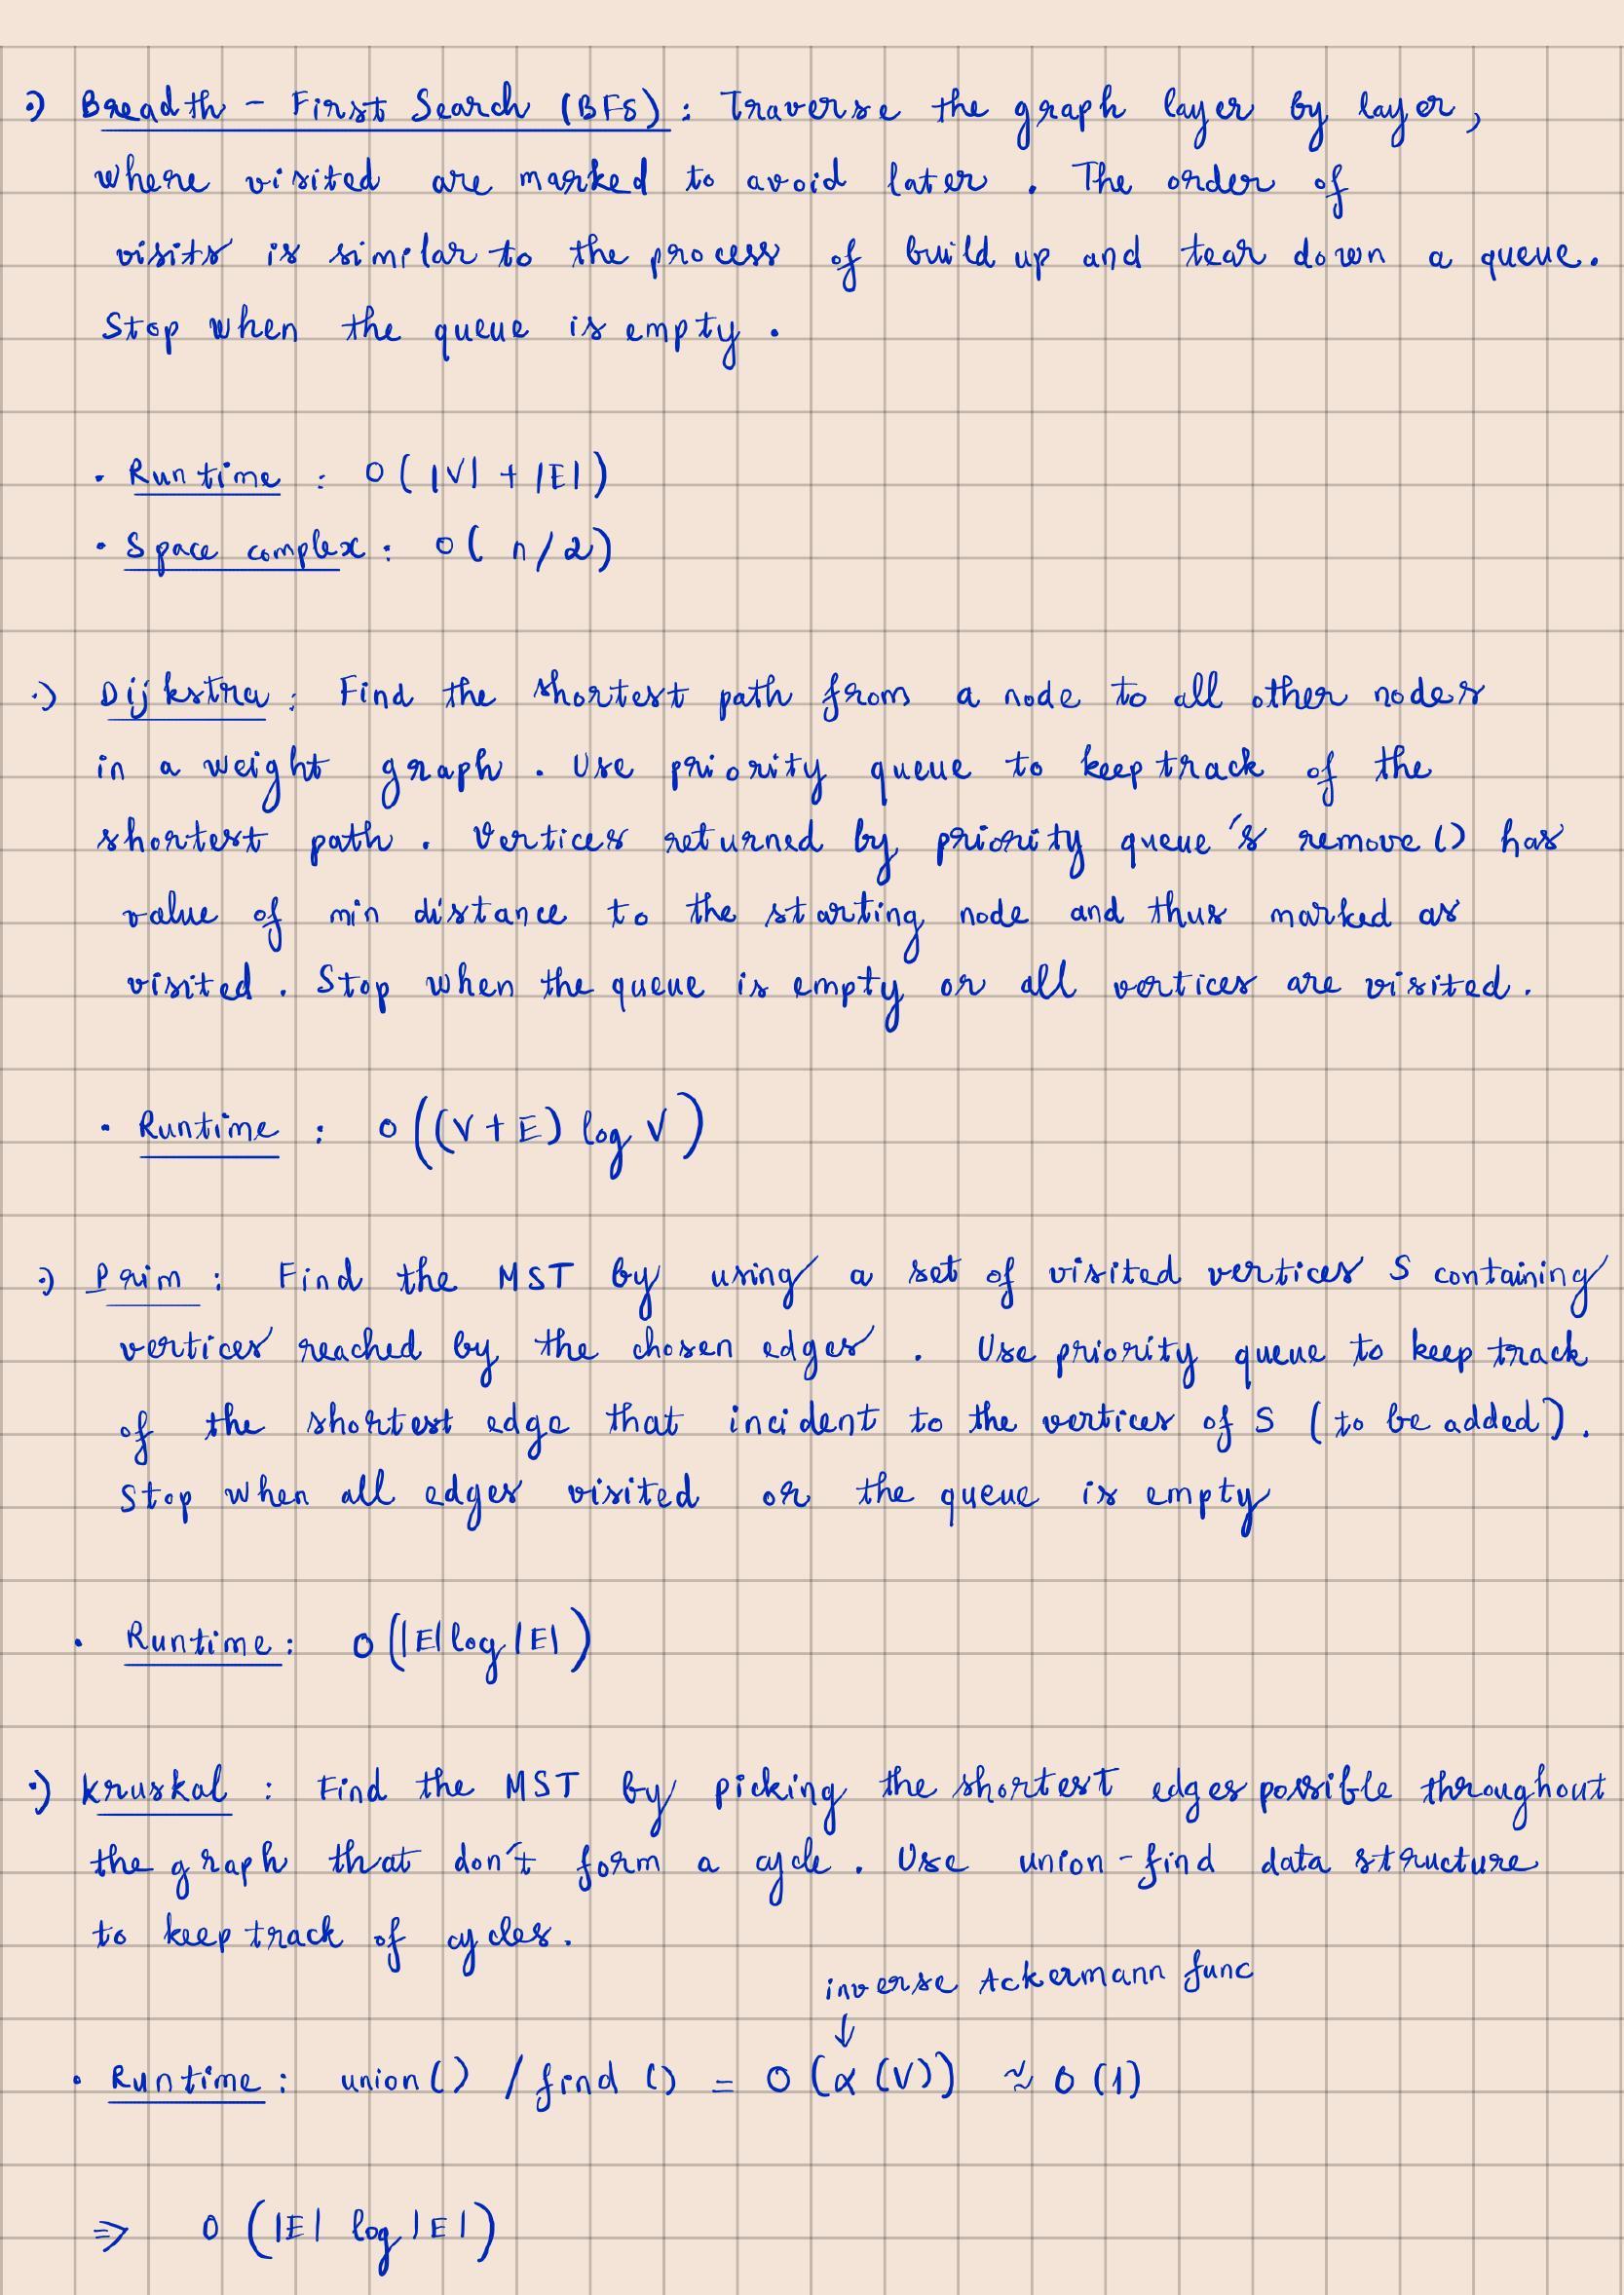 •) Breadth - First Search (BFS) : Traverse the graph layer by layer,
where visited are marked to avoid later . The order of
visits is similar to the process of build up and tear down a queue.
Stop when the queue is empty .
• Runtime : O ( |V| + |E| )
• Space complex : O ( n/2 )
•) Dijkstra : Find the shortest path from a node to all other nodes
in a weight graph . Use priority queue to keep track of the
shortest path . Vertices returned by priority queue's remove () has
value of min distance to the starting node and thus marked as
visited . Stop when the queue is empty or all vertices are visited .
• Runtime : O ((V + E) log V)
•) Prim : Find the MST by using a set of visited vertices S containing
vertices reached by the chosen edges . Use priority queue to keep track
of the shortest edge that incident to the vertices of S ( to be added ) .
Stop when all edges visited or the queue is empty
• Runtime : O (|E| log |E|)
•) Kruskal : Find the MST by picking the shortest edges possible throughout
the graph that don't form a cycle . Use union-find data structure
to keep track of cycles .
inverse Ackermann func
↓
• Runtime : union () / find () = O (α (V)) ≈ O (1)
⇒ O (|E| log |E|)